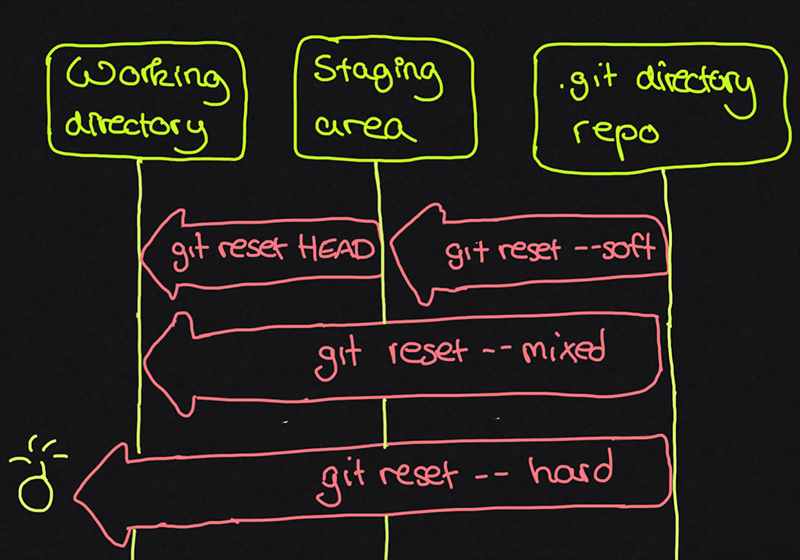 Working
directory
Staging
area
.git directory
repo
git reset HEAD
git reset --soft
git reset --mixed
git reset -- hard